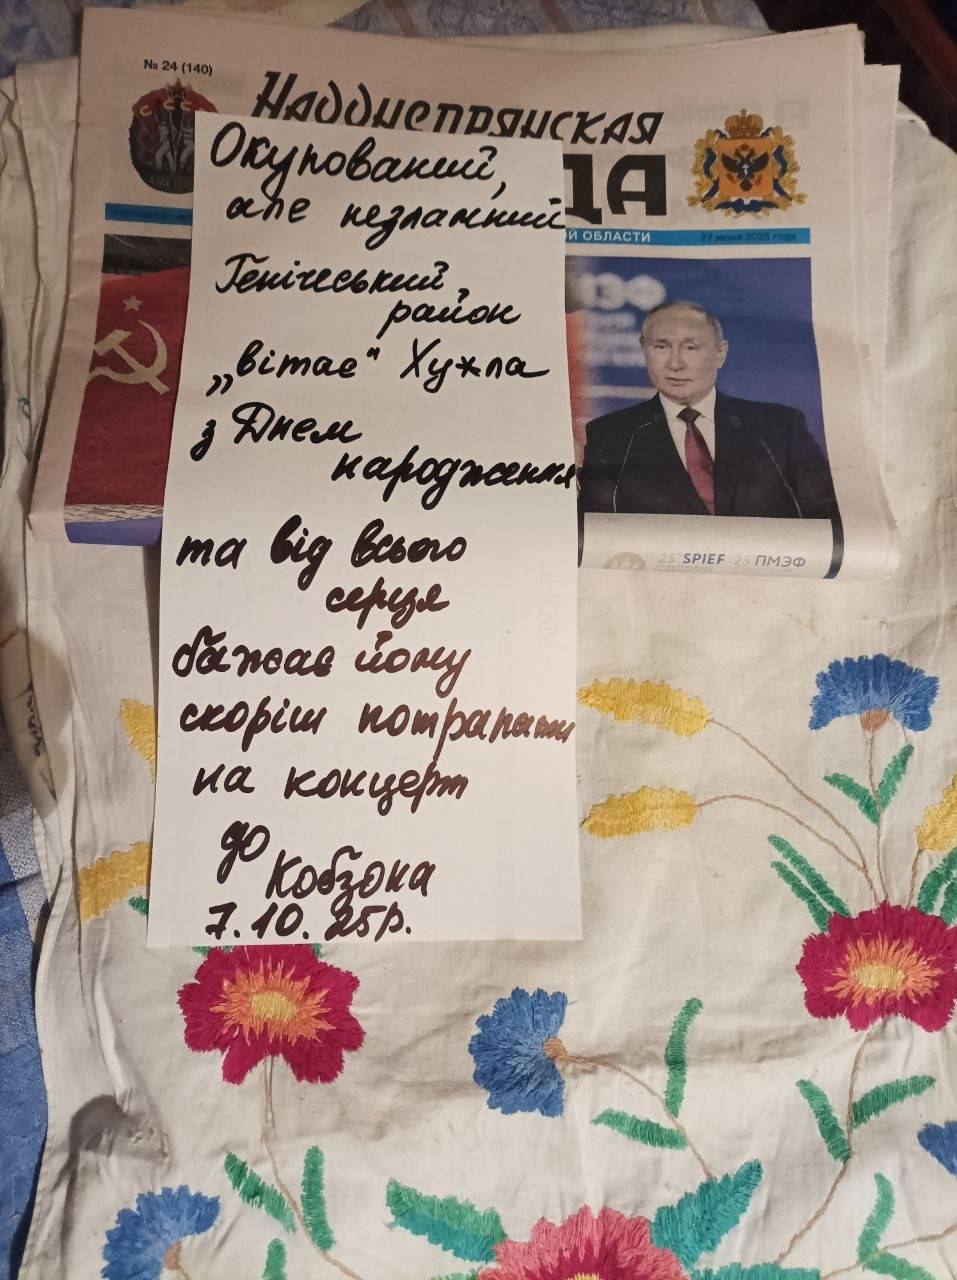 № 24 (140)
СССР
Наддnепрянская
ДА
ОЙ ОБЛАСТИ
27 июня 2025 года
Окупований,
але незламний
Генічеський
район
„вітає" Ху*ла
з Днем
народження
та від всього
серця
бажає йому
скоріш потрапити
на концерт
до
Кобзона
7.10.25р.
25 SPIEF 25 ПМЭФ